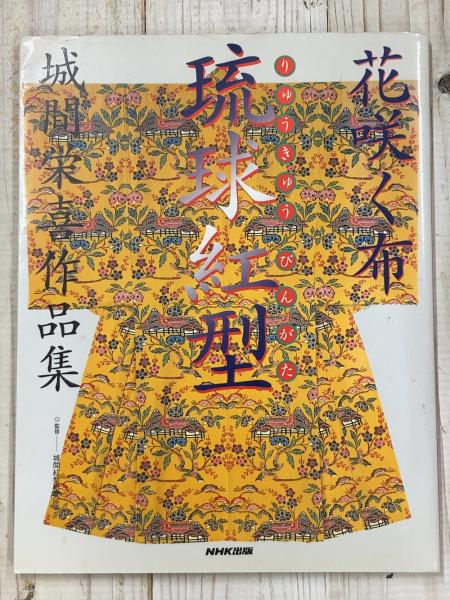 花咲く布
りゅうきゅうびんがた
琉球紅型
城間栄喜作品集
◎監修 城間紅型
NHK出版